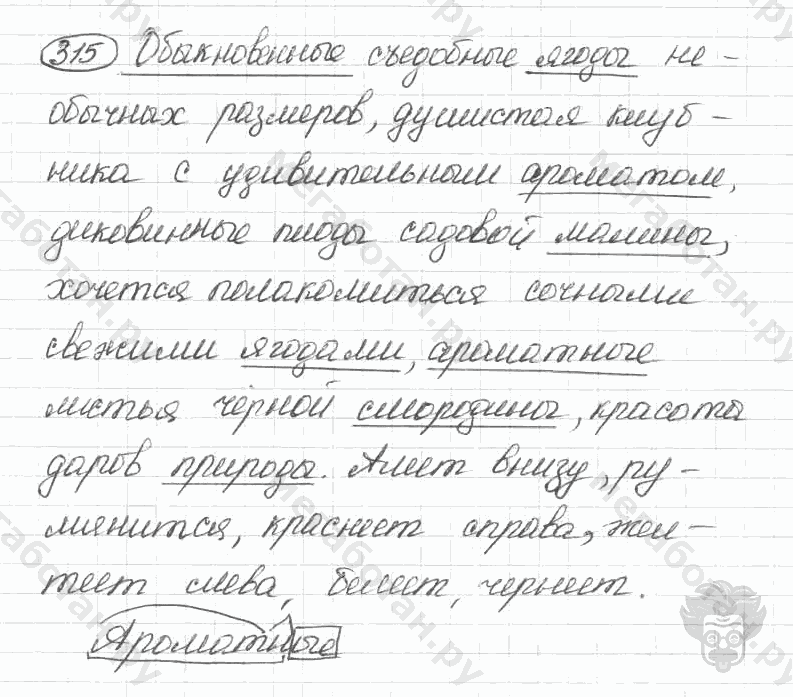 315 Обыкновенные съедобные ягоды не-
обычных размеров, душистая клуб-
ника с удивительным ароматом,
диковинные плоды садовой малины,
хочется полакомиться сочными
свежими ягодами, ароматные
листья чёрной смородины, красота
даров природы. Алеет внизу, ру-
мянится, краснеет справа, жел-
теет слева, белеет, чернеет.
Ароматные
мегаботан.ру
мегаботан.ру
мегаботан.ру
мегаботан.ру